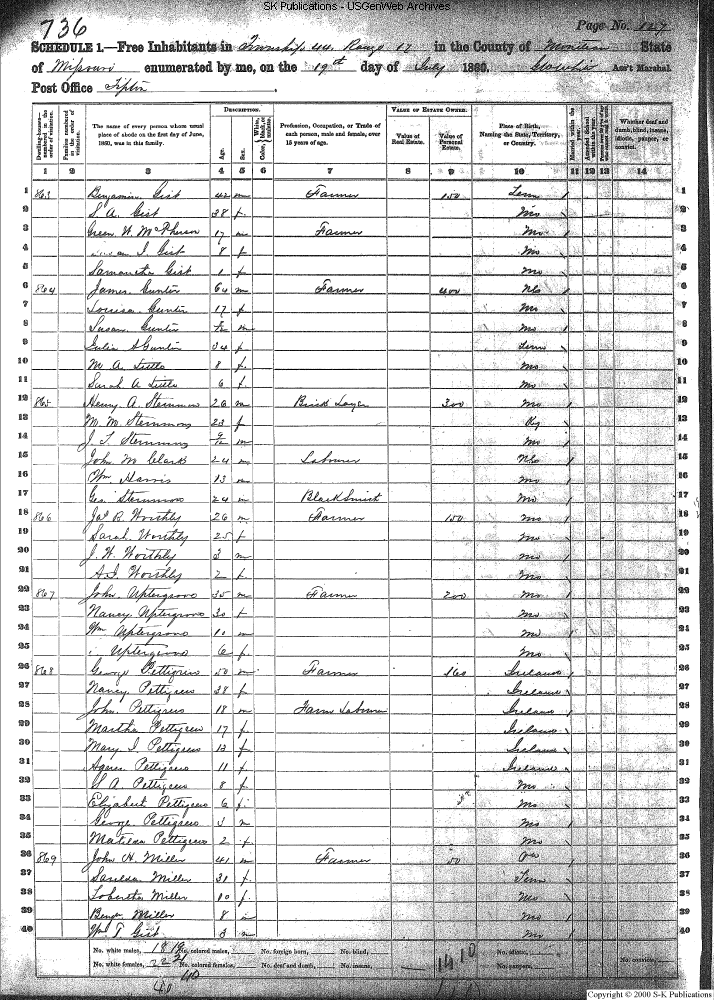 SK Publications - USGenWeb Archives
736
Page No. 127
SCHEDULE 1.—Free Inhabitants in Township 44 Range 17 in the County of Moniteau State
of Missouri enumerated by me, on the 19th day of July 1860. Ass't Marshal.
Post Office Tipton
Dwelling-houses—numbered in the order of visitation.
Families numbered in the order of visitation.
The name of every person whose usual place of abode on the first day of June, 1860, was in this family.
DESCRIPTION.
Age.
Sex.
Color, White, black, or mulatto.
Profession, Occupation, or Trade of each person, male and female, over 15 years of age.
VALUE OF ESTATE OWNED.
Value of Real Estate.
Value of Personal Estate.
Place of Birth, Naming the State, Territory, or Country.
Married within the year.
Attended School within the year.
Whether deaf and dumb, blind, insane, idiotic, pauper, or convict.
1 2 3 4 5 6 7 8 9 10 11 12 13 14
1 863 Benjamin Gist 42 m Farmer 150 Tenn / 1
2 S. A. Gist 38 f Mo 2
3 Green W. McPherson 17 m Farmer Mo 3
4 I. Gist 8 f Mo 4
5 Samantha Gist 1 f Mo 5
6 864 James Gunter 64 m Farmer 400 NC 6
7 Louisa Gunter 17 f Mo 7
8 Susan Gunter m Mo 8
9 Julia S Gunter 34 f Tenn 9
10 M A Tuttle 8 f Mo 10
11 Sarah A Tuttle 6 f Mo 11
12 865 Henry A. Stemmons 26 m Brick Layer 300 Mo 12
13 M. M. Stemmons 23 f Ky 13
14 J. T. Stemmons 9/12 m Mo 14
15 John M Clark 24 m Laborer NC 15
16 Wm Harris 13 m Mo 16
17 Geo. Stemmons 24 m BlackSmith Mo 17
18 866 Jas R. Worthly 26 m Farmer 150 Mo 18
19 Sarah Worthly 25 f Mo 19
20 J. W. Worthly 3 m Mo 20
21 A. I. Worthly 2 f Mo 21
22 867 John Uptergrove 35 m Farmer 200 Mo 22
23 Nancy Uptergrove 30 f Mo 23
24 Wm Uptergrove 10 m Mo 24
25 Uptergrove 6 f Mo 25
26 868 George Pettigrew 50 m Farmer 160 Ireland 26
27 Nancy Pettigrew 38 f Ireland 27
28 John Pettigrew 18 m Farm Laborer Ireland 28
29 Martha Pettigrew 17 f Ireland 29
30 Mary I. Pettigrew 13 f Ireland 30
31 Agnes Pettigrew 11 f Ireland 31
32 A. Pettigrew 8 f Mo 32
33 Elizabeth Pettigrew 6 f Mo 33
34 George Pettigrew 3 m Mo 34
35 Matilda Pettigrew 2 f Mo 35
36 869 John H. Miller 41 m Farmer 50 Va 36
37 Miller 31 f Tenn 37
38 Miller 10 f Mo 38
39 Benj. Miller 8 m Mo 39
40 Wm T Gist 3 m Mo 40
No. white males, 18 No. colored males, No. foreign born, No. blind, 1410 No. idiotic,
No. white females, 22 No. colored females, No. deaf and dumb, No. insane, No. paupers, No. convicts,
40 40
Copyright © 2000 S-K Publications